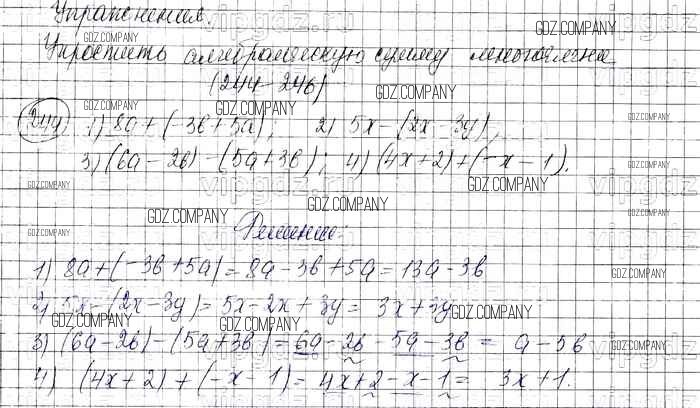 Упражнения
Упростить алгебраическую сумму многочлена
(244-246)
244 1) 8a+(-3b+5a); 2) 5x-(2x-3y);
3) (6a-2b)-(5a+3b); 4) (4x+2)+(-x-1).
Решение:
1) 8a+(-3b+5a)=8a-3b+5a=13a-3b
2) 5x-(2x-3y)=5x-2x+3y=3x+3y
3) (6a-2b)-(5a+3b)=6a-2b-5a-3b=a-5b
4) (4x+2)+(-x-1)=4x+2-x-1=3x+1.
GDZ.COMPANY
vipgdz.ru